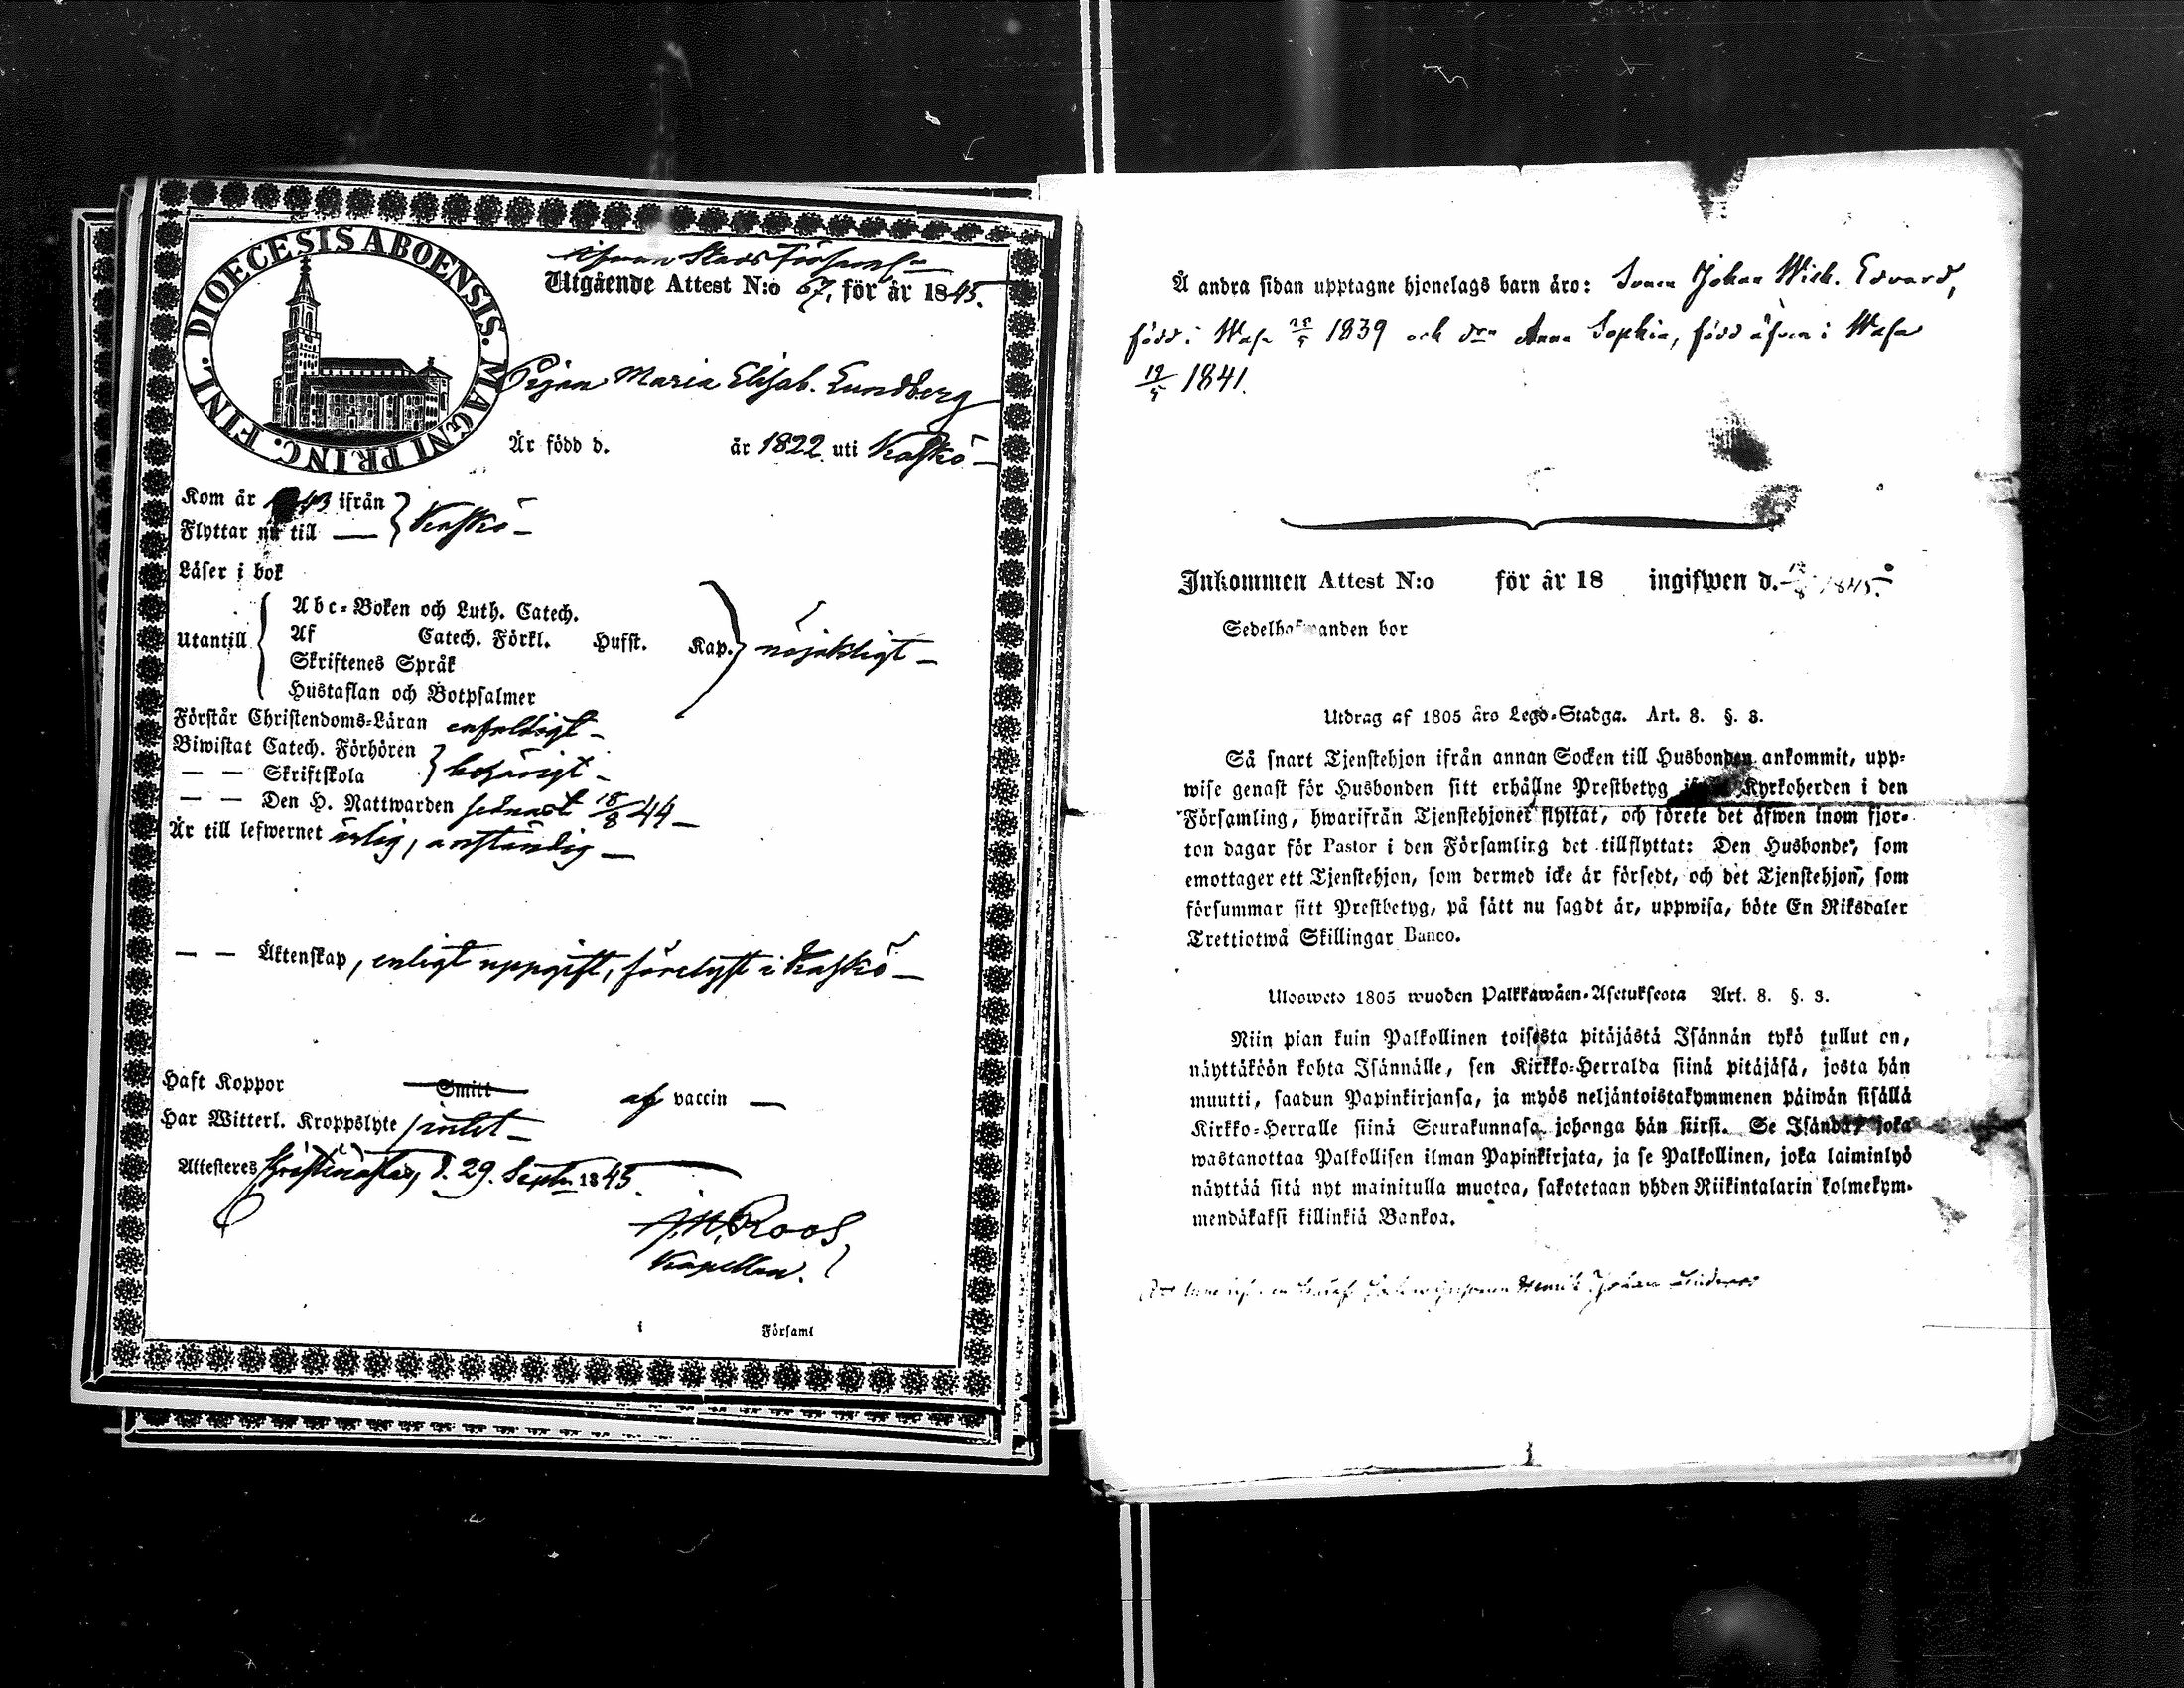 DIOECESIS ABOENSIS. MAGNI PRINC. FINL.
Utgående Attest N:o 67, för år 1845.
Pigan Maria Elisab. Lundberg
Är född d. år 1822 uti Kaskö
Kom år ifrån
Flyttar nu till — } Kaskö —
Läser i bok
Abc-Boken och Luth. Catech.
Utantill { Af Catech. Förkl. Husst. Kap. } nöjaktigt —
Skriftenes Språk
Hustaflan och Botpsalmer
Förstår Christendoms-Läran enfaldigt —
Biwistat Catech. Förhören
— — Skriftskola } behörigt —
— — Den H. Nattwarden sednast 18/8 44 —
Är till lefwernet ärlig, anständig —
— — Äktenskap, enligt uppgift, förelyst i Kaskö —
Haft Koppor Smitt af vaccin —
Har Witterl. Kroppslyte intet —
Attesteres Christinæstad, d. 29. Septbr 1845.
Roos,
Kapellan.
i Församl
Å andra sidan upptagne hjonelags barn äro: Sonen Johan Wilh. Edvard,
född i Wasa 1839 och Anna Sophia, född äfven i Wasa
19/5 1841.
Inkommen Attest N:o för år 18 ingifwen d. 1845.
Sedelhafwanden bor
Utdrag af 1805 års Lego-Stadga. Art. 8. §. 3.
Så snart Tjenstehjon ifrån annan Socken till Husbonden ankommit, upp-
wise genast för Husbonden sitt erhållne Prestbetyg Kyrkoherden i den
Församling, hwarifrån Tjenstehjonet flyttat, och förete det äfwen inom fjor-
ton dagar för Pastor i den Församling det tillflyttat: Den Husbonde, som
emottager ett Tjenstehjon, som dermed icke är försedt, och det Tjenstehjon, som
försummar sitt Prestbetyg, på sätt nu sagdt är, uppwisa, böte En Riksdaler
Trettiotwå Skillingar Banco.
Uloswето 1805 wuoden Palkkawäen-Asetuksesta Art. 8. §. 3.
Niin pian kuin Palkollinen toisesta pitäjästä Isännän tykö tullut on,
näyttäköön kohta Isännälle, sen Kirkko-Herralda siinä pitäjäsä, josta hän
muutti, saadun Papinkirjansa, ja myös neljäntoistakymmenen päiwän sisällä
Kirkko-Herralle siinä Seurakunnasa, johonga hän siirsi. Se Isändä, joka
wastanottaa Palkollisen ilman Papinkirjata, ja se Palkollinen, joka laiminlyö
näyttää sitä nyt mainitulla muotoa, sakotetaan yhden Riikintalarin kolmekym-
mendäkaksi killinkiä Bankoa.
Henrik Johan